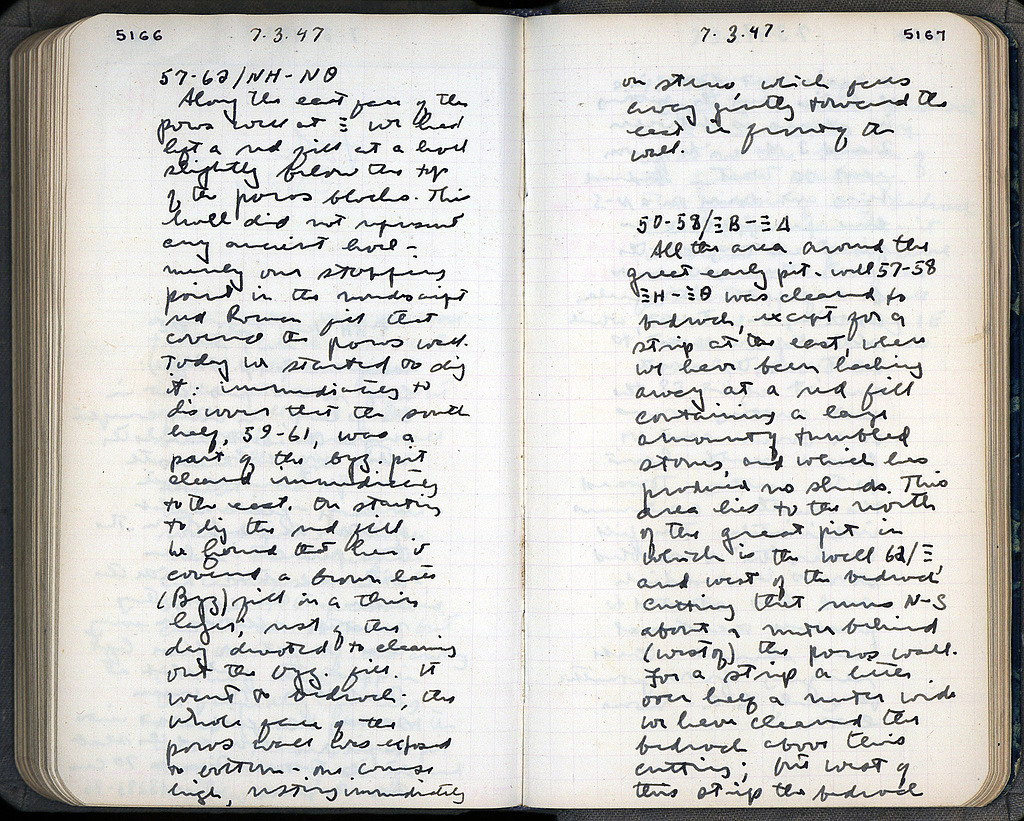 5166
7.3.47
57-62/ΝΗ-ΝΘ
Along the east face of the
poros wall at Ξ we had
left a red fill at a level
slightly below the top
of the poros blocks. This
level did not represent
any ancient level -
merely our stopping
point in the nondescript
red Roman fill that
covered the poros wall.
Today we started to dig
it: immediately to
discover that the south
half, 59-61, was a
part of the byz. pit
cleared immediately
to the east. On starting
to dig the red fill
we found that here it
covered a brown late
(Byz) fill in a thin
layer; rest of the
day devoted to clearing
out the byz. fill. It
went to bedrock; the
whole face of the
poros wall was exposed
to bottom - one course
high, resting immediately
7.3.47.
5167
on stereo, which falls
away gently toward the
east in front of the
wall.
50-58/ΞΒ-ΞΔ
All the area around the
great early pit - well 57-58
ΞΗ-ΞΘ was cleared to
bedrock, except for a
strip at the east, where
we have been hacking
away at a red fill
containing a large
amount of tumbled
stones, and which has
produced no sherds. This
area lies to the north
of the great pit in
which is the well 62/Ξ,
and west of the bedrock
cutting that runs N-S
about a meter behind
(west of) the poros wall.
For a strip a little
over half a meter wide
we have cleared the
bedrock above this
cutting; but west of
this strip the bedrock